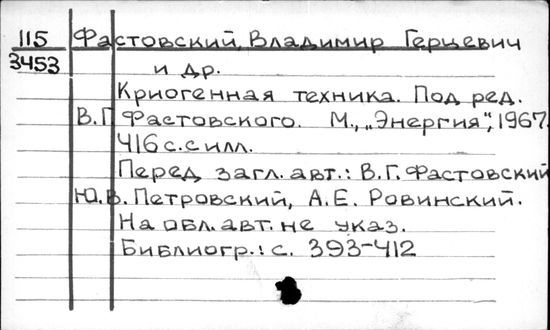 115 Фастовский, Владимир Герцевич
3453 и др.
Криогенная техника. Под ред.
В.Г. Фастовского. М., „Энергия", 1967.
416 с. с илл.
Перед загл. авт.: В.Г. Фастовский
Ю.В. Петровский, А.Е. Ровинский.
На обл. авт. не указ.
Библиогр.: с. 393-412